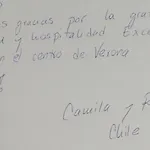 s gracias por la gra
d y hospitalidad Exce
n el centro de Verona
Camila y
Chile